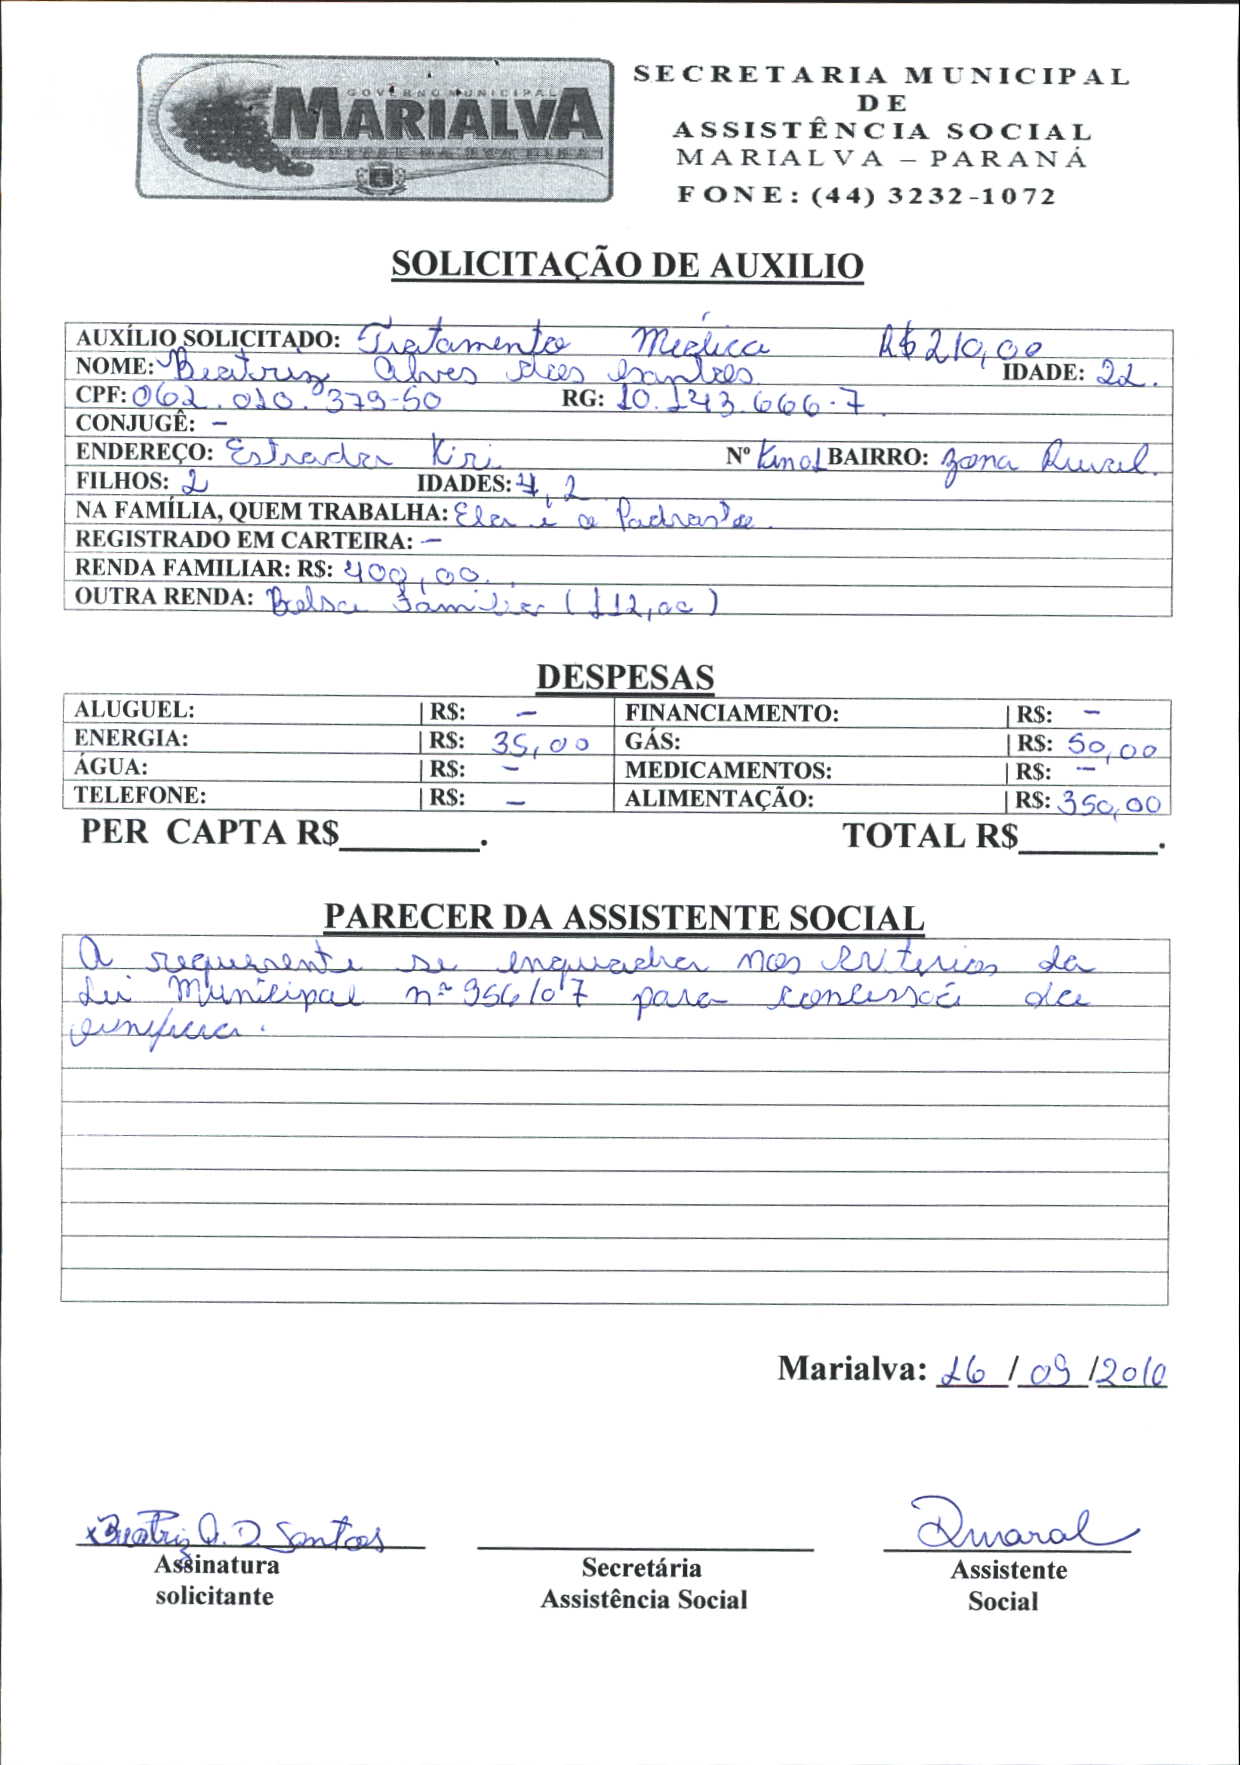 GOVERNO MUNICIPAL
MARIALVA
CAPITAL DA UVA FINA
SECRETARIA MUNICIPAL
DE
ASSISTÊNCIA SOCIAL
MARIALVA – PARANÁ
FONE: (44) 3232-1072
SOLICITAÇÃO DE AUXILIO
AUXÍLIO SOLICITADO: Tratamento Médico R$ 210,00
NOME: Beatriz Alves dos Santos IDADE: 22.
CPF: 062.010.379-50 RG: 10.143.666-7.
CONJUGÊ: -
ENDEREÇO: Estrada Kiri Nº BAIRRO: Zona Rural.
FILHOS: 2 IDADES: 4, 2
NA FAMÍLIA, QUEM TRABALHA: Ela e o Padrasto.
REGISTRADO EM CARTEIRA: -
RENDA FAMILIAR: R$: 400,00.
OUTRA RENDA: Bolsa Família (112,00)
DESPESAS
ALUGUEL: | R$: - FINANCIAMENTO: | R$: -
ENERGIA: | R$: 35,00 GÁS: | R$: 50,00
ÁGUA: | R$: - MEDICAMENTOS: | R$: -
TELEFONE: | R$: - ALIMENTAÇÃO: | R$: 350,00
PER CAPTA R$________. TOTAL R$________.
PARECER DA ASSISTENTE SOCIAL
A requerente se enquadra nos critérios da
Lei Municipal nº 956/07 para concessão do
benefício.
Marialva: 16 / 09 /2010
x Beatriz A. D. Santos Amaral
Assinatura Secretária Assistente
solicitante Assistência Social Social